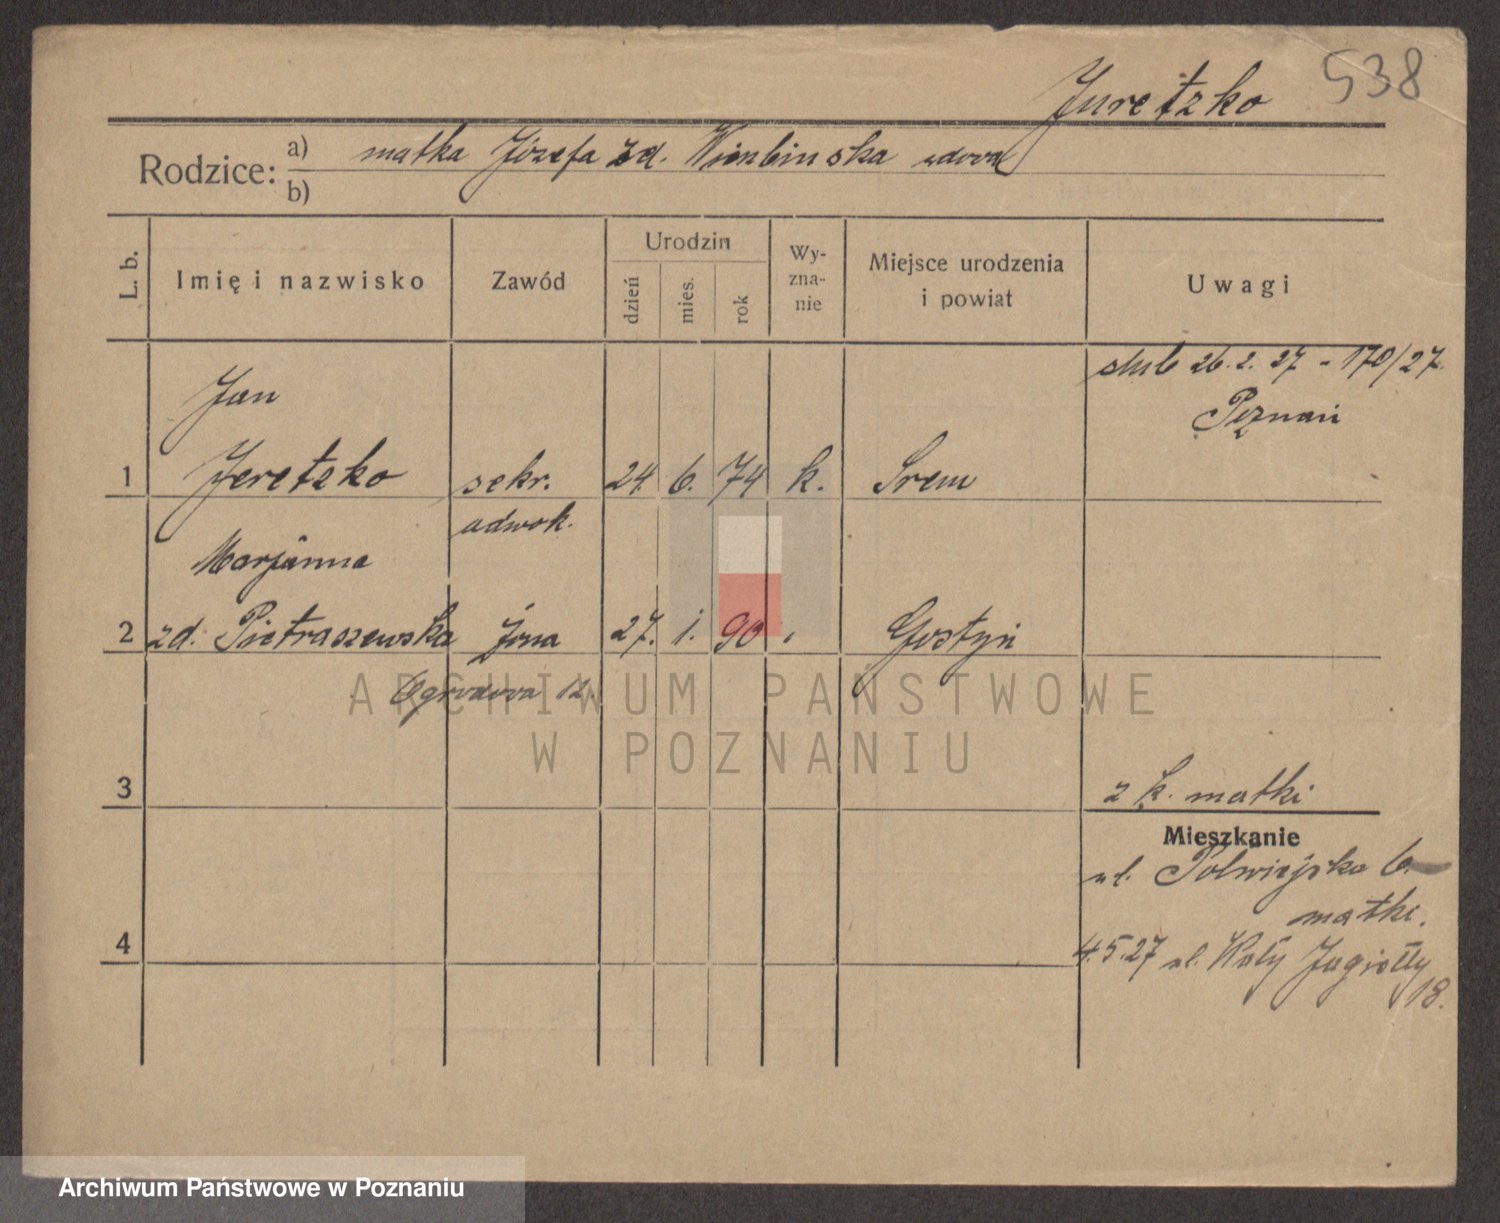 Juretzko 538
Rodzice:
a) matka Józefa zd. Wierzbinska wdowa
b)
L. b. Imię i nazwisko Zawód Urodzin dzień mies. rok Wy-zna-nie Miejsce urodzenia i powiat Uwagi
ślub 26. 2. 27 - 170/27.
Poznań
Jan
1 Jeretzko sekr. 24. 6. 74 k. Srem
adwok.
Marjanna
2 zd. Pietraszewska żona 27. 1. 90 Gostyń
Ogrodowa 12.
ARCHIWUM PAŃSTWOWE
W POZNANIU
3 z k. matki
Mieszkanie
ul. Półwiejska 6.
matki.
4 4.5.27 ul. Jagiełły
18.
Archiwum Państwowe w Poznaniu